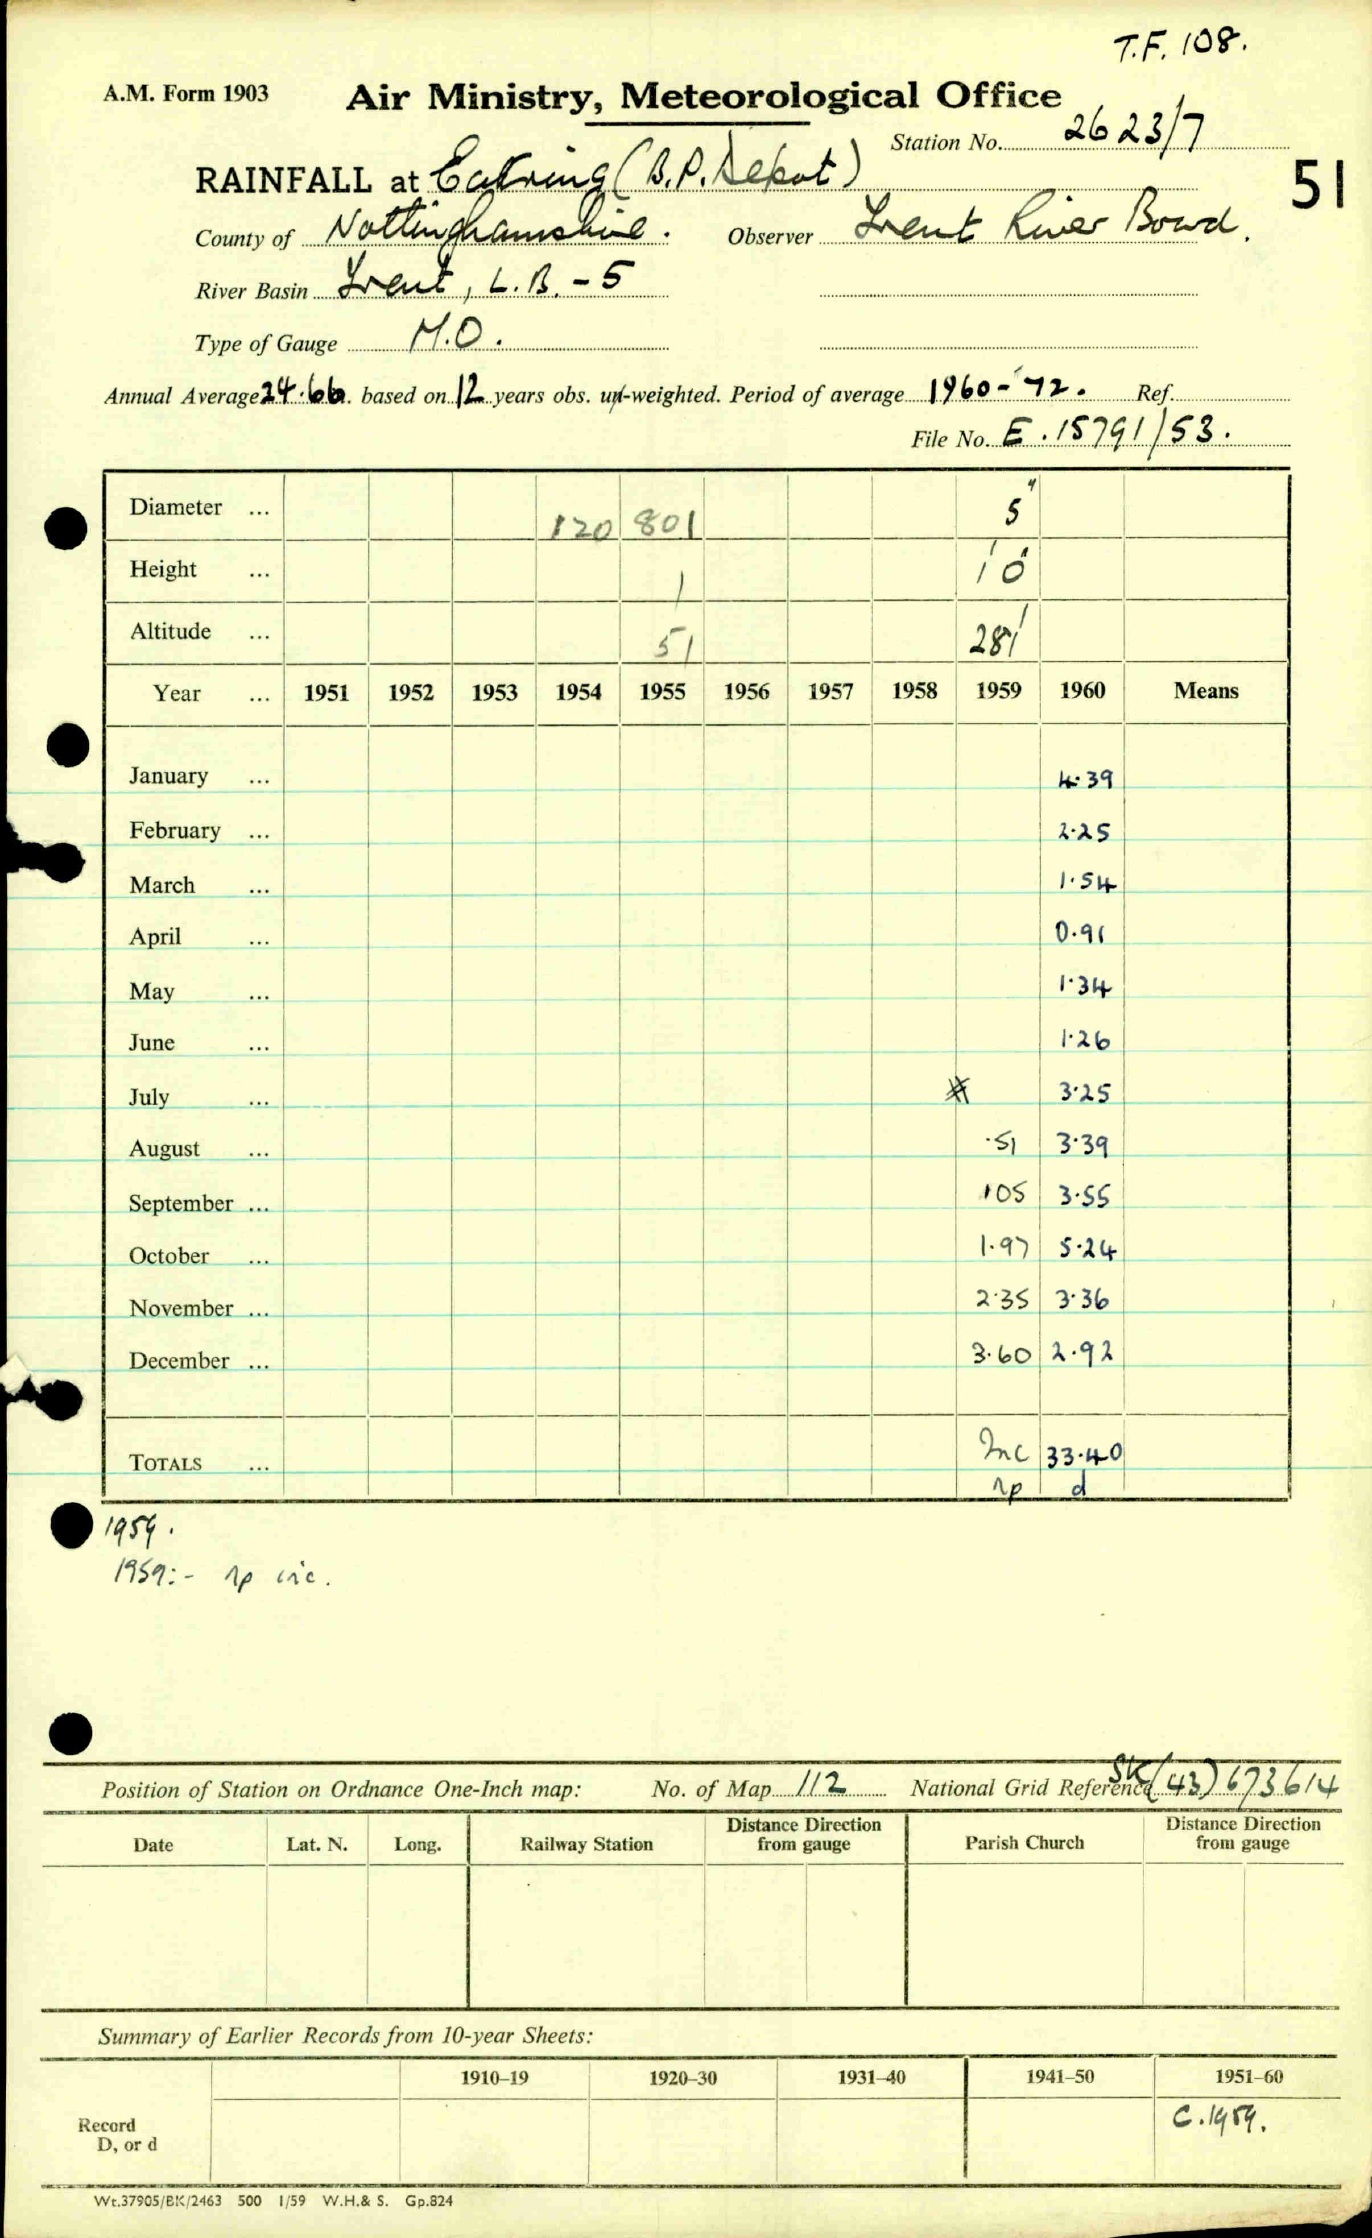 T.F. 108.
A.M. Form 1903
Air Ministry, Meteorological Office
Station No. 2623/7
RAINFALL at Eakring (B.P. Depot)
51
County of Nottinghamshire. Observer Trent River Board.
River Basin Trent, L.B. - 5
Type of Gauge M.O.
Annual Average 24.66. based on 12 years obs. un-weighted. Period of average 1960-'72. Ref.
File No. E.15791/53.
Diameter ... 120 801 5"
Height ... 1 1' 0"
Altitude ... 51 281'
Year ... 1951 1952 1953 1954 1955 1956 1957 1958 1959 1960 Means
January ... 4.39
February ... 2.25
March ... 1.54
April ... 0.91
May ... 1.34
June ... 1.26
July ... 3.25
August ... .51 3.39
September ... 105 3.55
October ... 1.97 5.24
November ... 2.35 3.36
December ... 3.60 2.92
TOTALS ... Inc 33.40
rp d
1959.
1959:- rp inc.
Position of Station on Ordnance One-Inch map: No. of Map 112 National Grid Reference SK(43) 673614
Date Lat. N. Long. Railway Station Distance Direction from gauge Parish Church Distance Direction from gauge
Summary of Earlier Records from 10-year Sheets:
1910–19 1920–30 1931–40 1941–50 1951–60
Record
D, or d
C.1959.
Wt.37905/BK/2463 500 1/59 W.H.& S. Gp.824